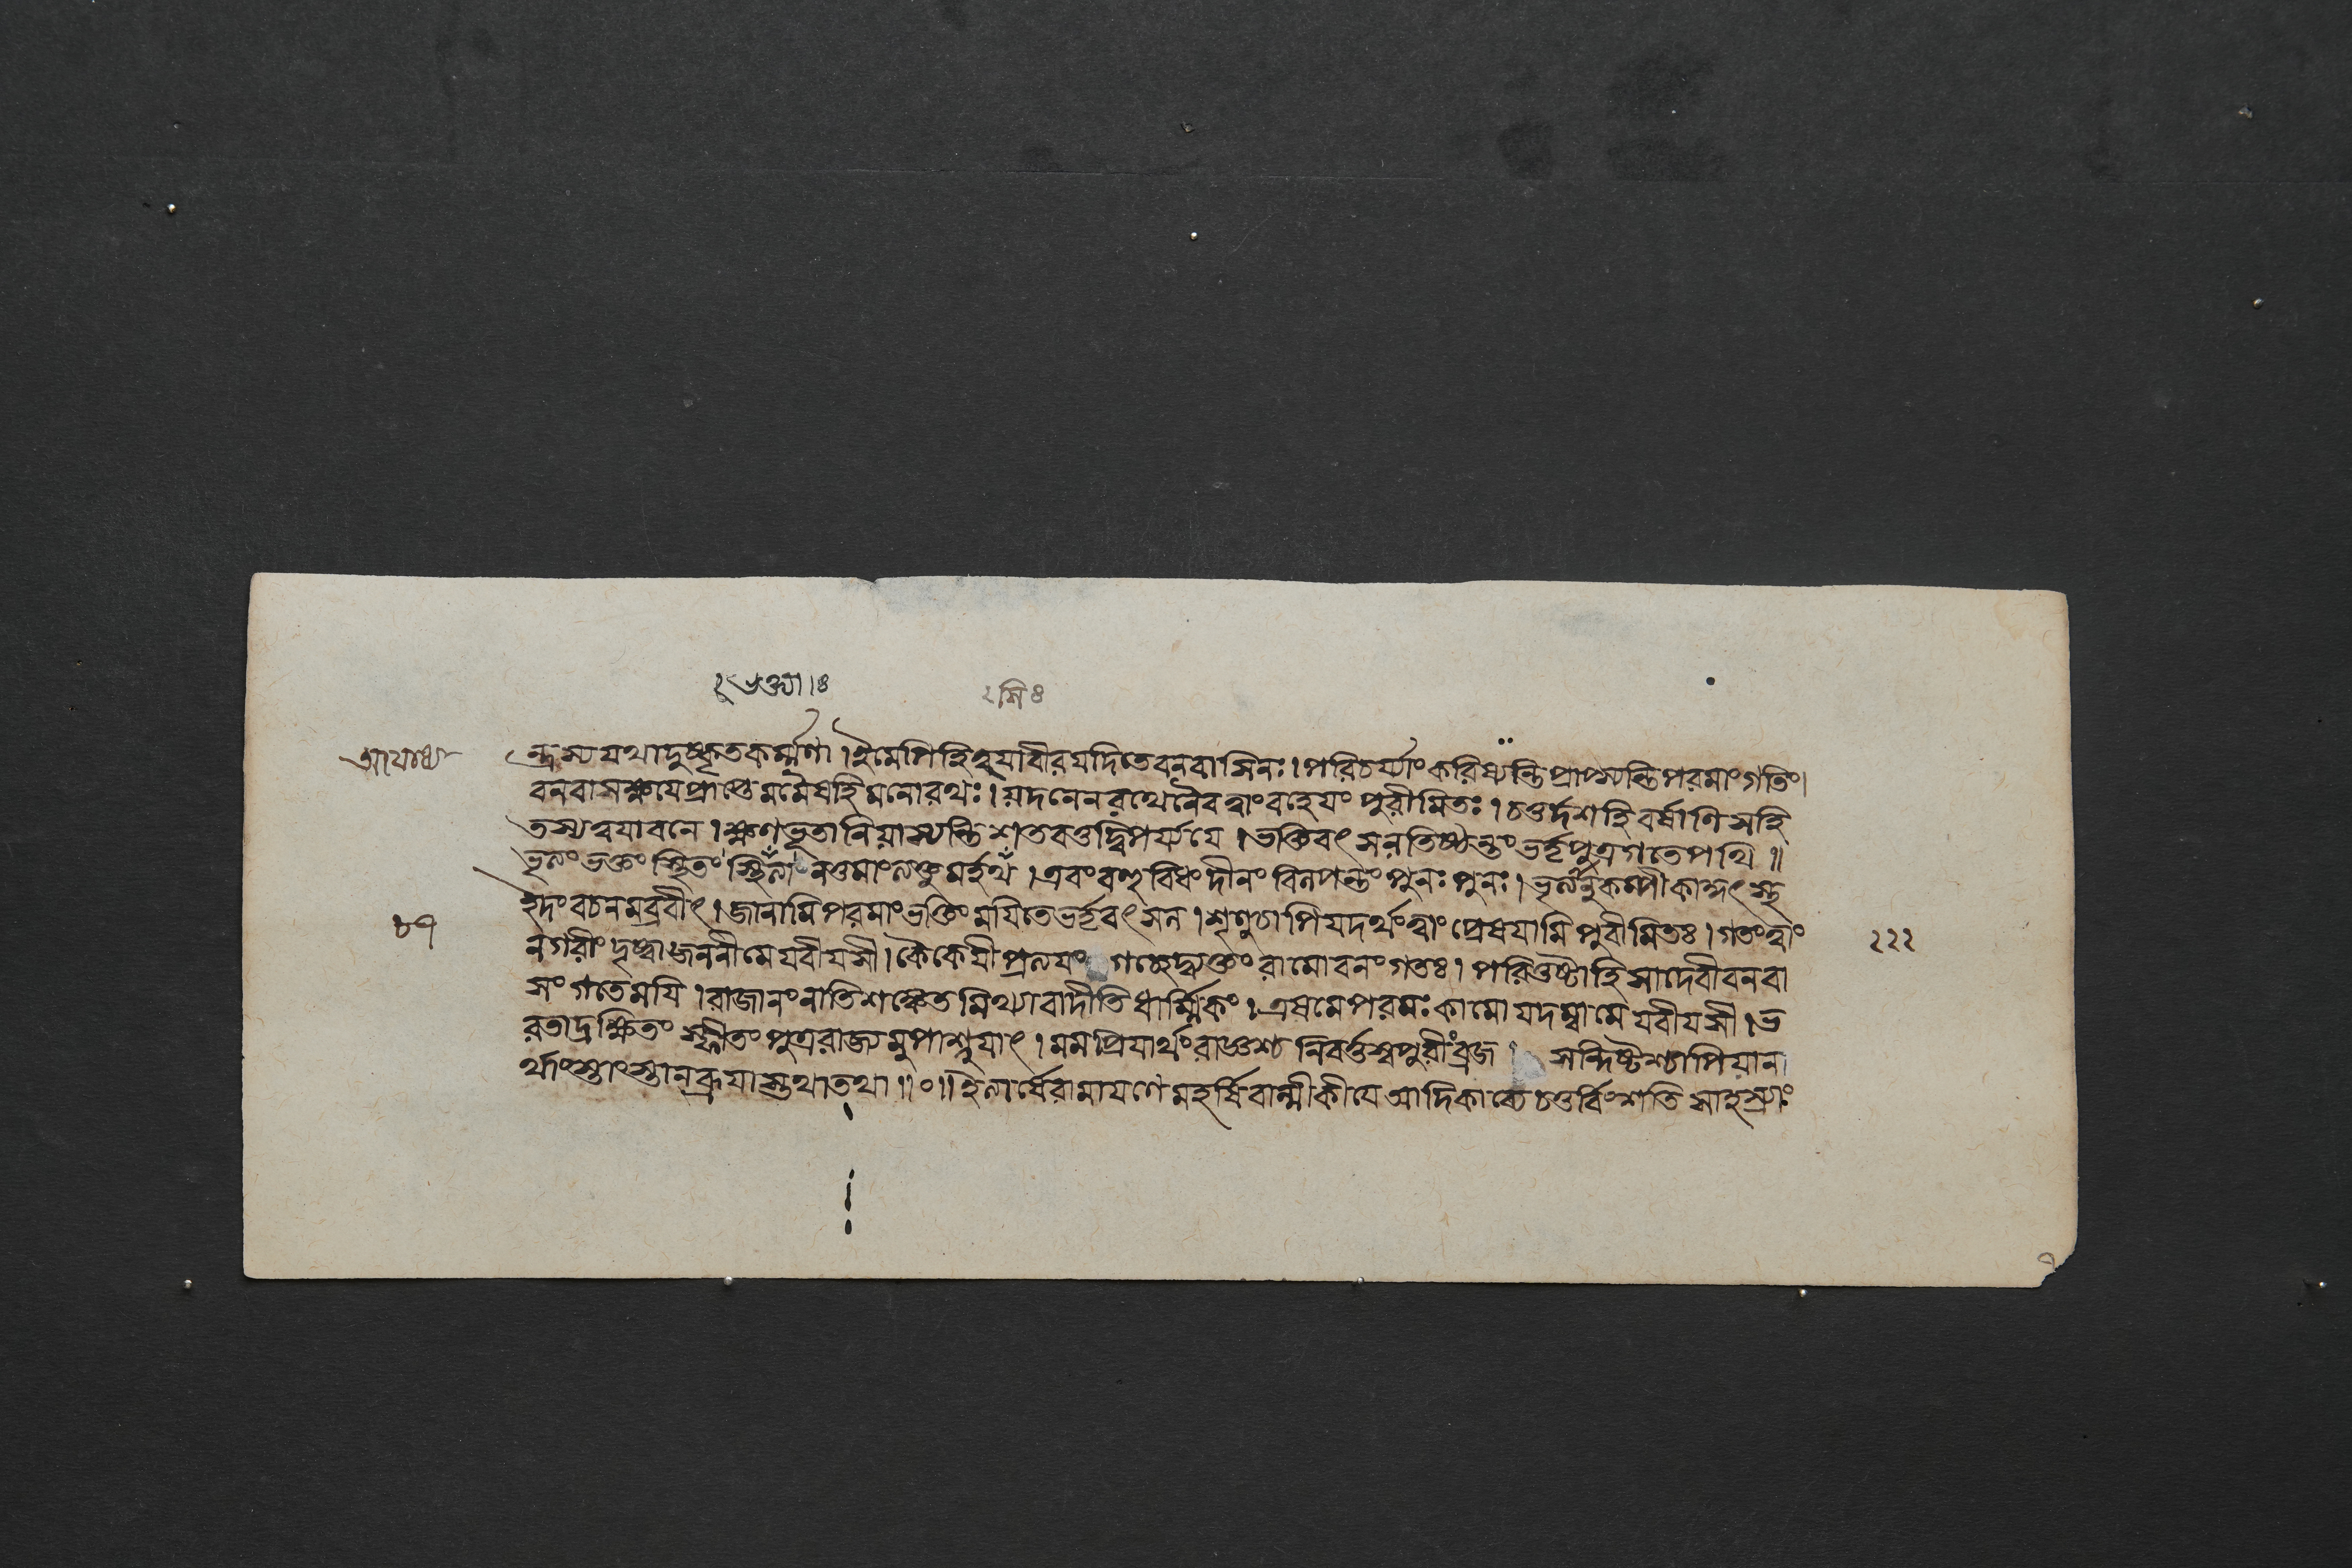 ২ভক্ত্যা।৪
২মি৪
আযোধ্য
ন্দ্রস্যযথাদুষ্কৃতকর্ম্মণা।ইমেপিহিহযাবীরযদিতেবনবাসিনঃ।পরিচর্য্যাংকরিষ্যন্তিপ্রাপ্স্যন্তিপরমাংগতিং।
বনবাসক্ষযেপ্রাপ্তেমমৈষহিমনোরথঃ।যদনেনরথেনৈবত্বাংবহেযংপুরীমিতঃ।চতুর্দশহিবর্ষাণিসহি
তস্যত্বযাবনে।ক্ষণভূতানিযাস্যন্তিশতবত্তদ্বিপর্য্যযে।ভক্তিবৎসলতিষ্ঠন্তংভর্তৃপুত্রগতেপথি॥
ভৃত্যংভক্তংস্থিতংস্থিত্যাংনতুমাংত্যক্তুমর্হথ।এবংবহুবিধংদীনংবিলপন্তংপুনঃপুনঃ।ভৃত্যানুকম্পীকাকুৎস্থ
ইদংবচনমব্রবীৎ।জানামিপরমাংভক্তিংমযিতেভর্তৃবৎসল।শৃণুচাপিযদর্থংত্বাংপ্রেষযামিপুরীমিতঃ।গতংত্বাং
৮৭
২২২
নগরীংদৃষ্ট্বাজননীমেযবীযসী।কৈকেযীপ্রত্যযংগচ্ছেদ্ব্যক্তংরামোবনংগতঃ।পরিতুষ্টাহিসাদেবীবনবা
সংগতেমযি।রাজানংনাতিশঙ্কেতমিথ্যাবাদীতিধার্ম্মিকং।এষমেপরমঃকামোযদম্বামেযবীযসী।ভ
রতাদ্রক্ষিতংস্ফীতংপুত্ররাজ্যমুপাশ্নুযাৎ।মমপ্রিযার্থংরাজ্ঞশ্চনিবর্ত্তস্বপুরীংব্রজ।সন্দিষ্টশ্চাপিযান
র্থাংস্তাংস্তানব্রূযাস্তথাতথা॥০॥ইত্যার্ষেরামাযণেমহর্ষিবাল্মীকীযেআদিকাব্যেচতুর্বিংশতিসাহস্র্যাং